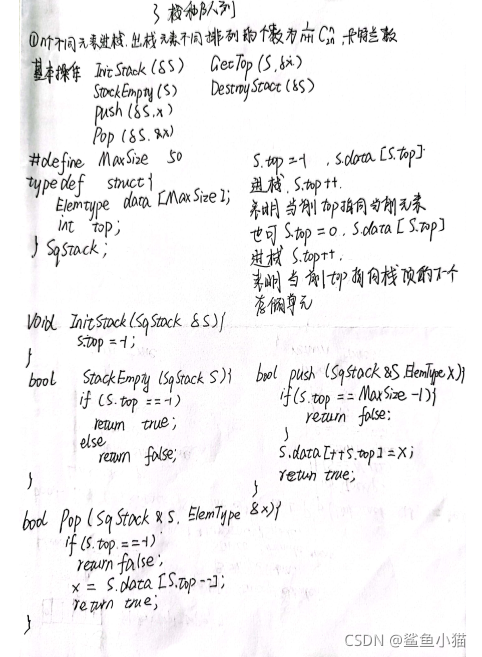 3 栈和队列
①n个不同元素进栈,出栈元素不同排列的个数为 1/(n+1) C_2n^n,卡特兰数
基本操作 InitStack(&S) GetTop(S,&x)
StackEmpty(S) DestroyStact(&S)
push(&S,x)
Pop(&S,&x)
#define MaxSize 50
typedef struct{
Elemtype data[MaxSize];
int top;
} SqStack;
S.top=-1 , S.data[S.top]
进栈 S.top++.
表明当前top指向当前元素
也可 S.top=0, S.data[S.top]
进栈 S.top++.
表明当前top指向栈顶的下一个
存储单元
Void InitStack(SqStack &S){
S.top=-1;
}
bool StackEmpty(SqStack S){
if (S.top==-1)
return true;
else
return false;
}
bool push(SqStack &S,ElemType x){
if(S.top==MaxSize-1){
return false;
}
S.data[++S.top]=x;
return true;
}
bool Pop(SqStack &S, ElemType &x){
if(S.top==-1)
return false;
x = S.data[S.top--];
return true;
}
CSDN @鲨鱼小猫